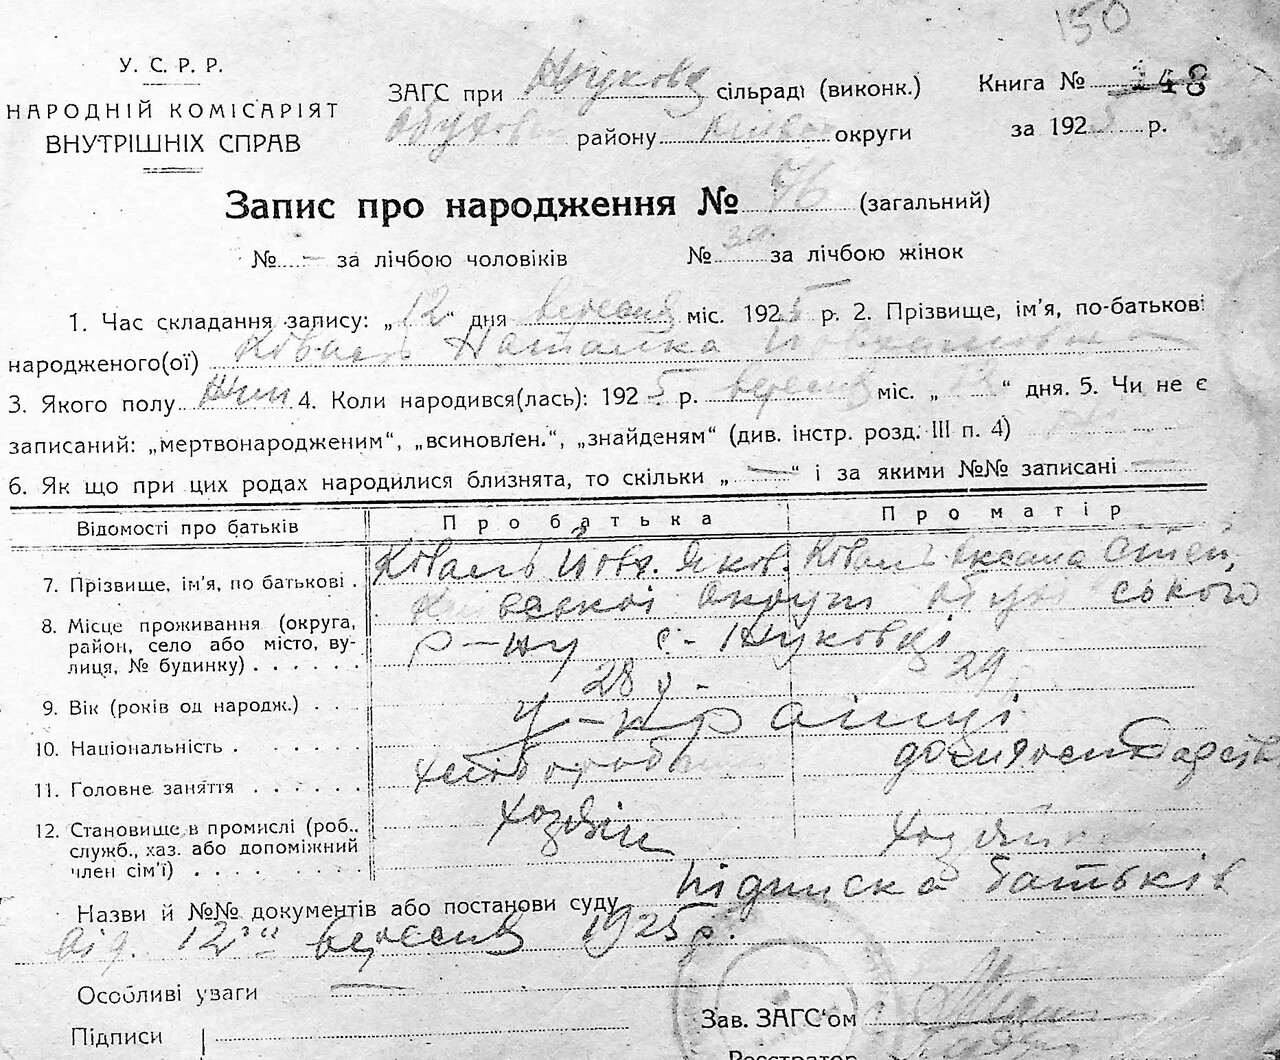 150
У. С. Р. Р.
НАРОДНІЙ КОМІСАРІЯТ
ВНУТРІШНІХ СПРАВ
ЗАГС при Жукова сільраді (виконк.) Книга № 148
району округи за 1925 р.
Запис про народження № 76 (загальний)
№ — за лічбою чоловіків № за лічбою жінок
1. Час складання запису: „12“ дня вересня міс. 1925 р. 2. Прізвище, ім'я, по-батькові
народженого(ої) Коваль Наталка
3. Якого полу Жін 4. Коли народився(лась): 1925 р. вересня міс. „ “ дня. 5. Чи не є
записаний: „мертвонародженим“, „всиновлен.“, „знайденям“ (див. інстр. розд. III п. 4)
6. Як що при цих родах народилися близнята, то скільки „—“ і за якими №№ записані —
Відомості про батьків Про батька Про матір
7. Прізвище, ім'я, по батькові . Коваль Йовх. Яков. Коваль Оксана
8. Місце проживання (округа, район, село або місто, вулиця, № будинку) . . . . . . округи ського
р-ну с. Жуковці
9. Вік (років од народж.) . . . 28 р. 29
10. Національність . . . . . . у-країнці
11. Головне заняття . . . . . . хлібороб домгосподарств
12. Становище в промислі (роб., служб., хаз. або допоміжний член сім'ї) . . . . . . . . хозяін хозяйка
Назви й №№ документів або постанови суду підписка батьків
від 12го вересня 1925 р.
Особливі уваги —
Підписи
Зав. ЗАГС'ом
Реєстратор